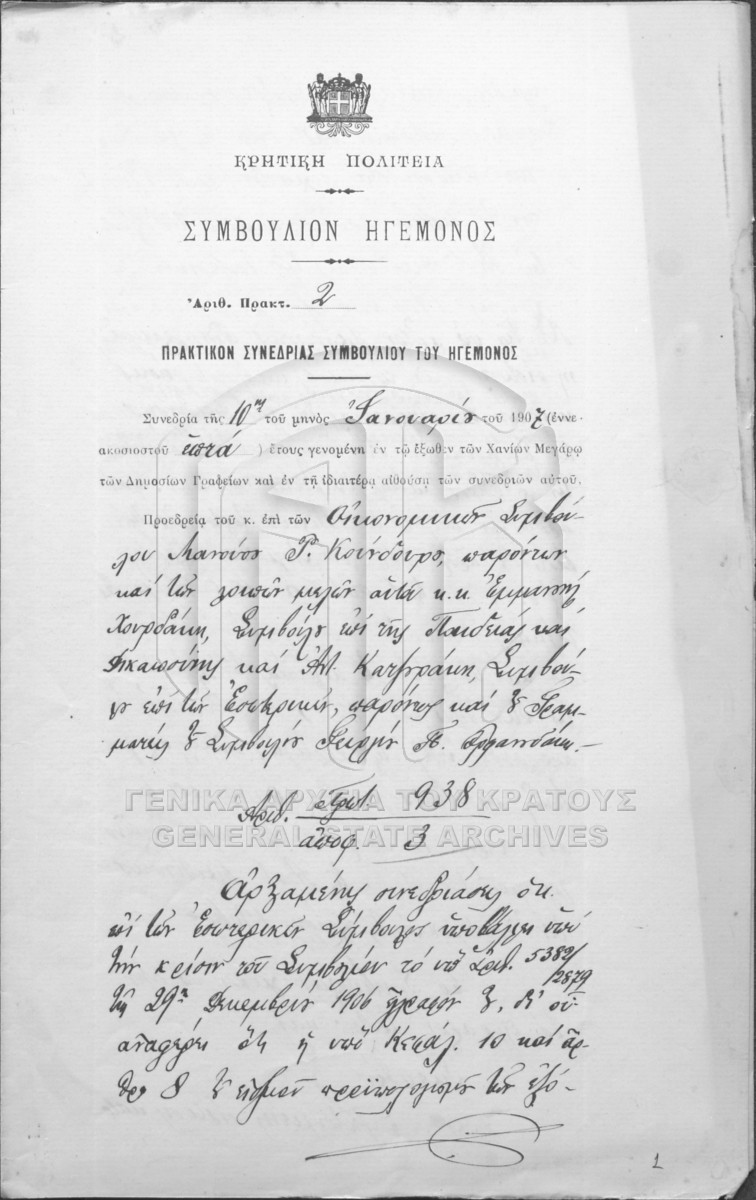 ΚΡΗΤΙΚΗ ΠΟΛΙΤΕΙΑ
ΣΥΜΒΟΥΛΙΟΝ ΗΓΕΜΟΝΟΣ
Ἀριθ. Πρακτ. 2
ΠΡΑΚΤΙΚΟΝ ΣΥΝΕΔΡΙΑΣ ΣΥΜΒΟΥΛΙΟΥ ΤΟΥ ΗΓΕΜΟΝΟΣ
Συνεδρία τῆς 10ης τοῦ μηνὸς Ἰανουαρίου τοῦ 1907 (ἐννε-
ακοσιοστοῦ ἑπτά ) ἔτους γενομένη ἐν τῷ ἔξωθεν τῶν Χανίων Μεγάρῳ
τῶν Δημοσίων Γραφείων καὶ ἐν τῇ ἰδιαιτέρᾳ αἰθούσῃ τῶν συνεδριῶν αὐτοῦ.
Προεδρείᾳ τοῦ κ. ἐπὶ τῶν Οἰκονομικῶν Συμβού-
λου Μανούσου Ρ. Κούνδουρου, παρόντων
καὶ τῶν λοιπῶν μελῶν αὐτοῦ κ.κ. Ἐμμανουὴλ
Χουρδάκη, Συμβούλου ἐπὶ τῆς Παιδείας καὶ
Δικαιοσύνης καὶ Ἀντ. Κατζουράκη, Συμβού-
λου ἐπὶ τῶν Ἐσωτερικῶν, παρόντος καὶ τοῦ Γραμ-
ματέως τοῦ Συμβουλίου Γεωργίου Π.
Ἀριθ. Πρωτ. 938
ἀποφ. 3
ΓΕΝΙΚΑ ΑΡΧΕΙΑ ΤΟΥ ΚΡΑΤΟΥΣ
GENERAL STATE ARCHIVES
Ἀρξαμένης συνεδριάσεως ὁ κ.
ἐπὶ τῶν Ἐσωτερικῶν Σύμβουλος ὑποβάλλει ὑπὸ
τὴν κρίσιν τοῦ Συμβουλίου τὸ ὑπ' ἀριθ. 5382/
/2879
τῆς 29ης Δεκεμβρίου 1906 ἔγγραφόν του, δι' οὗ
ἀναφέρει ὅτι ἡ ὑπὸ Κεφάλ. 10 καὶ ἄρ-
θρ. 8 τοῦ εἰδικοῦ προϋπολογισμοῦ τῶν ἐξό-
1